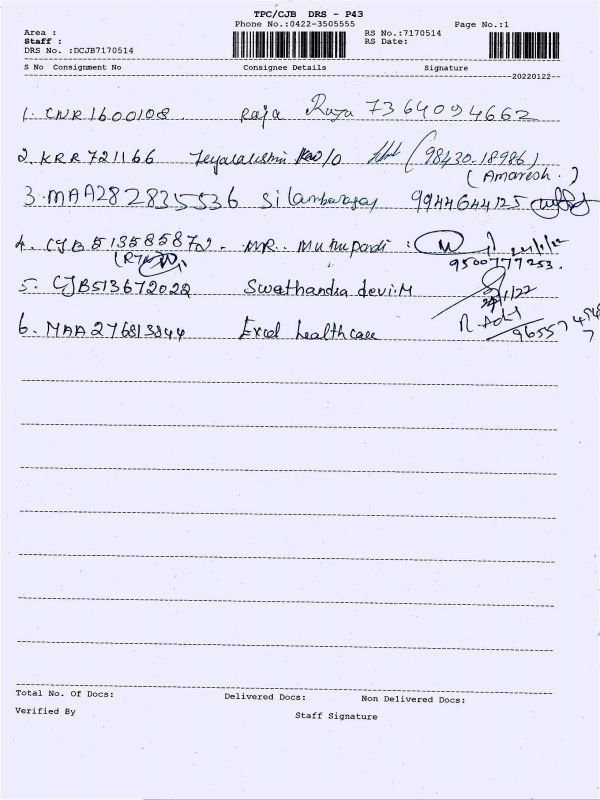 TPC/CJB DRS - P43
Phone No.:0422-3505555 Page No.:1
Area :
Staff :
DRS No. :DCJB7170514
RS No.:7170514
RS Date:
S No Consignment No Consignee Details Signature
20220122
1. CNR1600108 Raja Raja 7364094662
2. KRR721166 (98430-18986)
(Amaresh.)
3. MAA282835536 Silambarasan 9944644125
4. CJB513585872 - MR. Muthupandi :
9500777253.
5. CJB513672022 Swathandra devi.M
6. MAA276813844 Excel healthcare
Total No. Of Docs: Delivered Docs: Non Delivered Docs:
Verified By Staff Signature